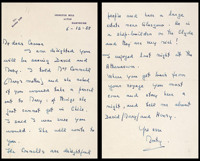 6-12-28
My dear Anna
I am delighted you
will be seeing David and
Mary. I told Mrs Connell
(Mary's mother) and she asked
if you would take a parcel
out to Mary, of things she
just cannot get in Chile.
I said I was sure you
would. She will write to
you.
The Connells are delightful
people and have a large
estate near Glasgow. He is
a ship-builder on the Clyde
and they are very rich!
I enjoyed last night at the
Athenaeum.
When you get back from
your voyage you must
come and stay for a
night, and tell me about
David, Mary and Henry.
Yrs ever